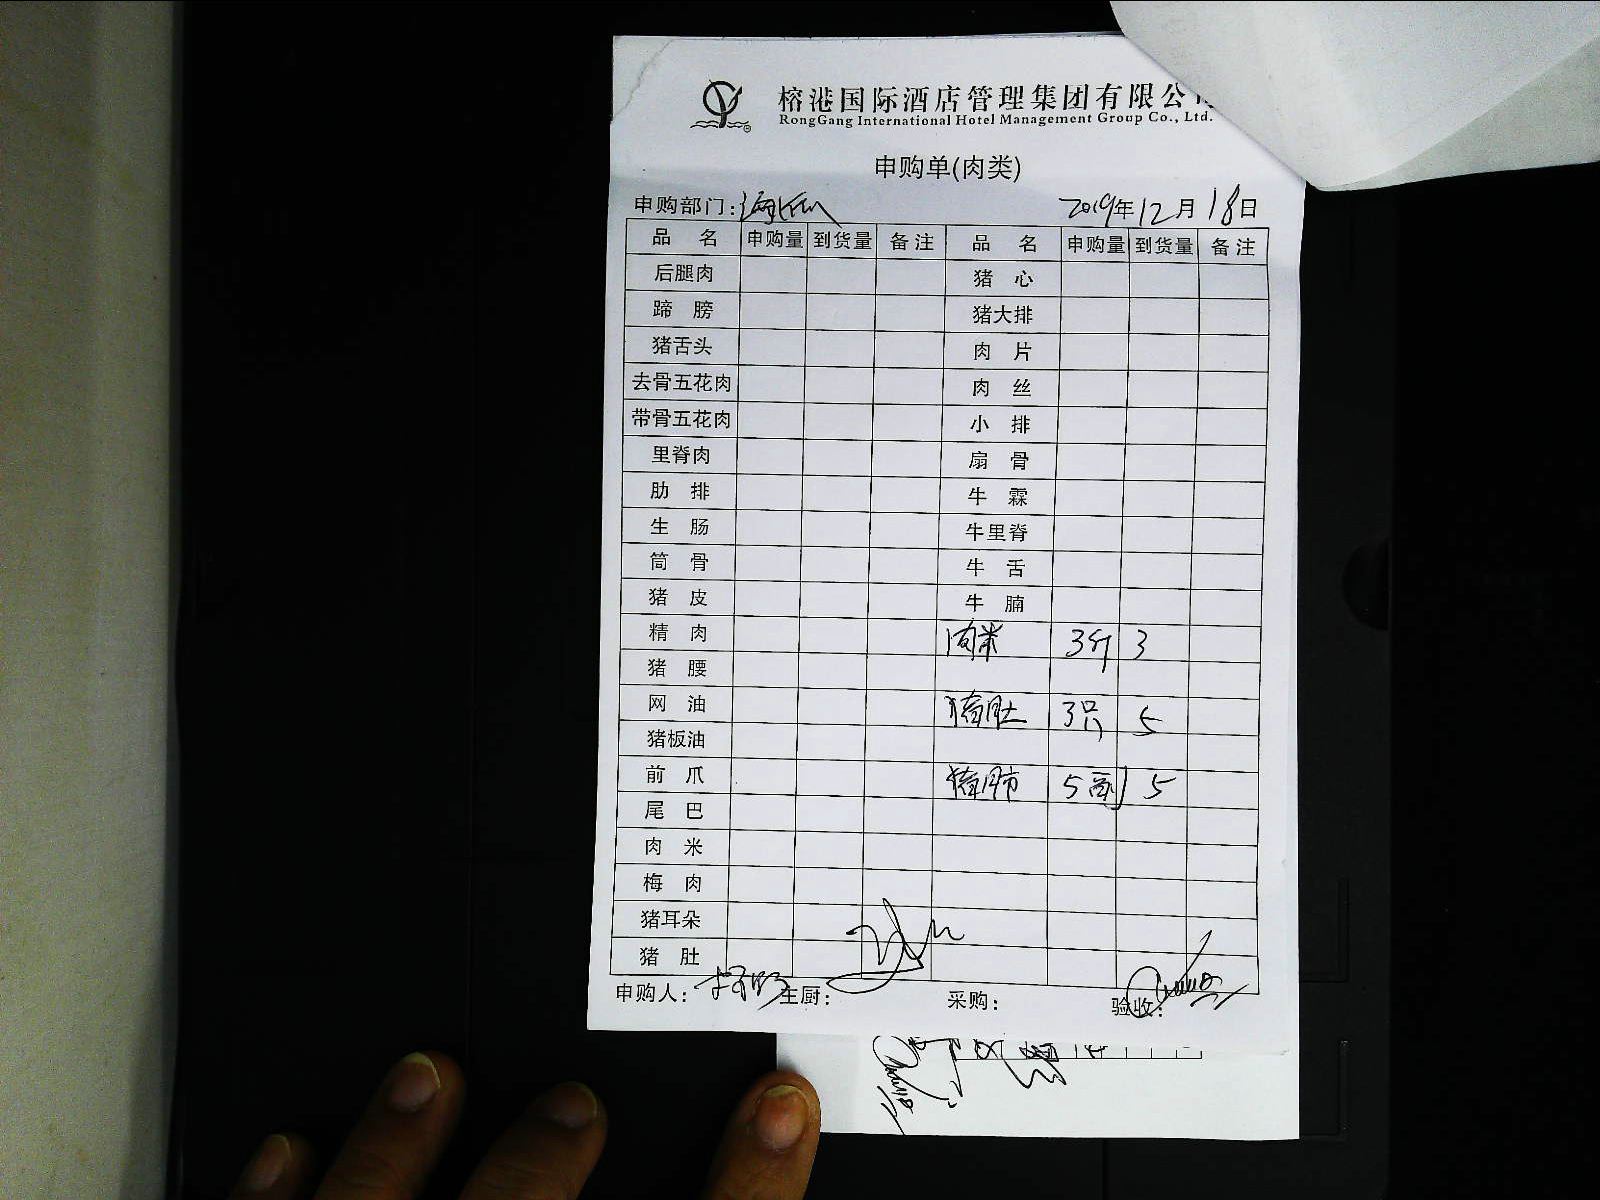 榕港国际酒店管理集团有限公司
RongGang International Hotel Management Group Co., Ltd.
申购单(肉类)
申购部门: 2019年12月18日
品 名 申购量 到货量 备注 品 名 申购量 到货量 备注
后腿肉 猪 心
蹄 膀 猪大排
猪舌头 肉 片
去骨五花肉 肉 丝
带骨五花肉 小 排
里脊肉 扇 骨
肋 排 牛 霖
生 肠 牛里脊
筒 骨 牛 舌
猪 皮 牛 腩
精 肉 肉米 3斤 3
猪 腰
网 油 猪肚 3只 5
猪板油
前 爪 猪肺 5副 5
尾 巴
肉 米
梅 肉
猪耳朵
猪 肚
申购人: 主厨: 采购: 验收: